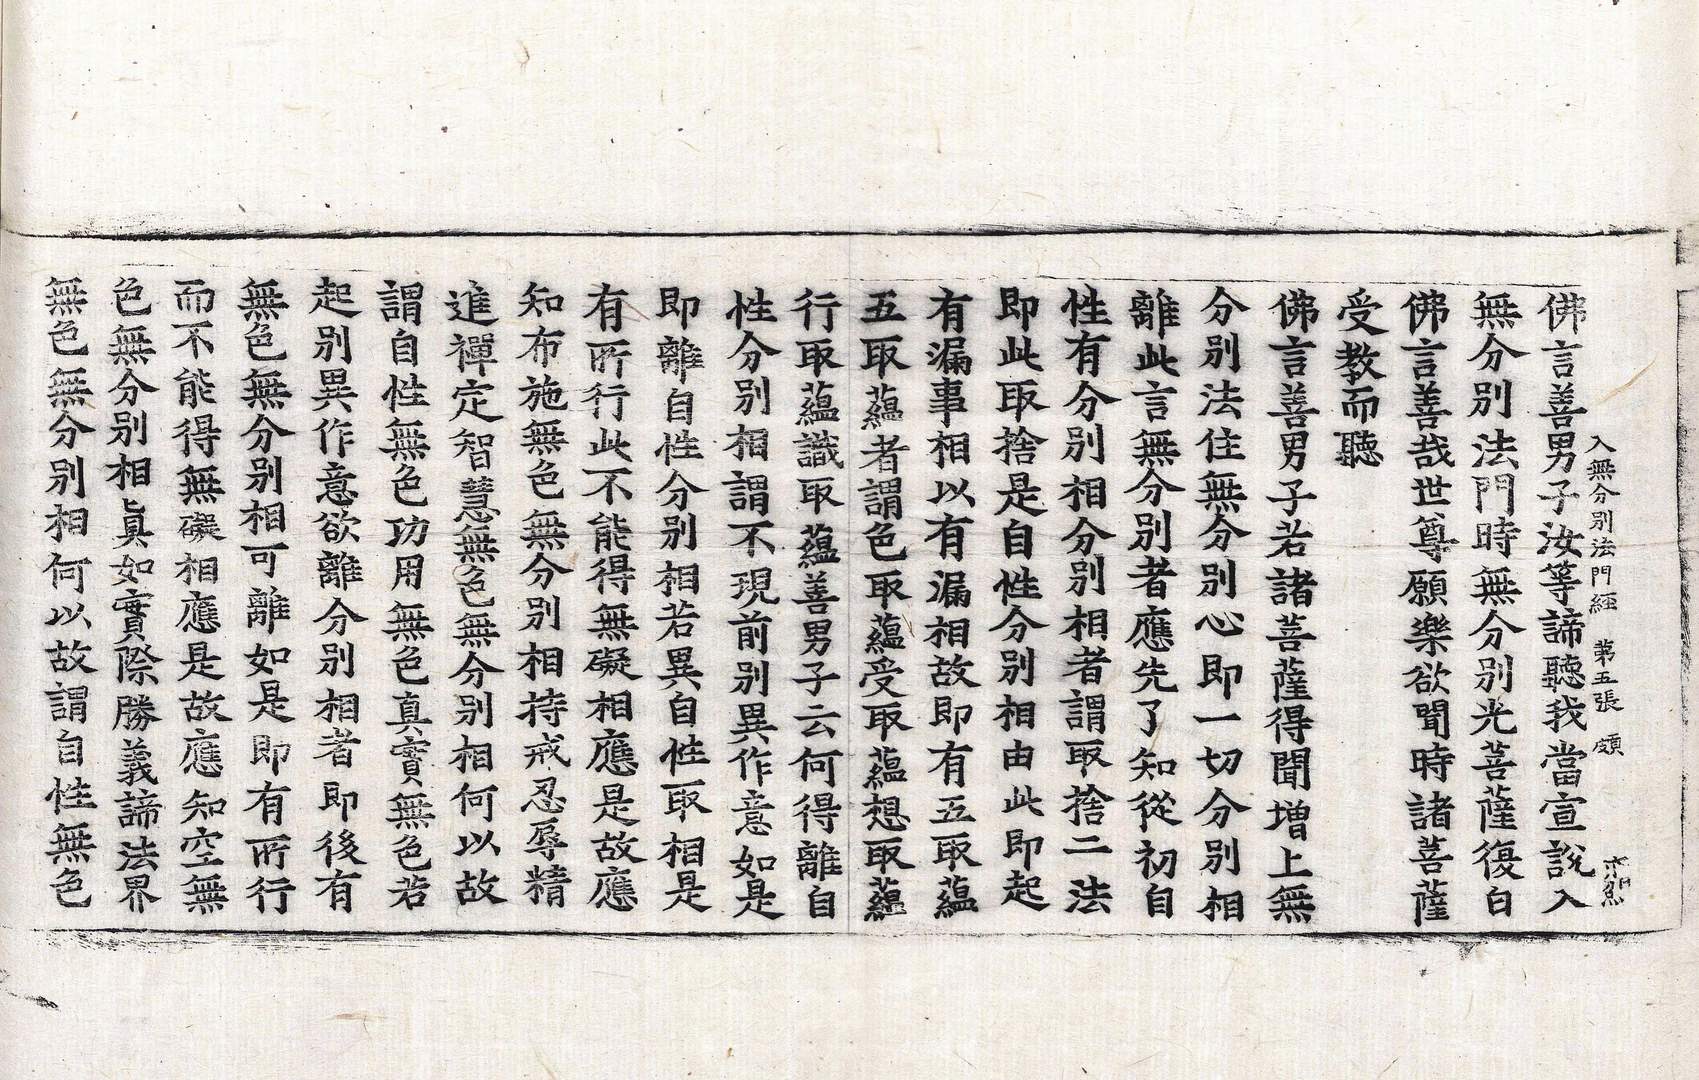 入無分別法門經 第五張 頗
佛言善男子汝等諦聽我當宣說入
無分別法門時無分別光菩薩復白
佛言善哉世尊願樂欲聞時諸菩薩
受教而聽
佛言善男子若諸菩薩得聞增上無
分別法住無分別心即一切分別相
離此言無分別者應先了知從初自
性有分別相分別相者謂取捨二法
即此取捨是自性分別相由此即起
有漏事相以有漏相故即有五取蘊
五取蘊者謂色取蘊受取蘊想取蘊
行取蘊識取蘊善男子云何得離自
性分別相謂不現前別異作意如是
即離自性分別相若異自性取相是
有所行此不能得無礙相應是故應
知布施無色無分別相持戒忍辱精
進禪定智慧無色無分別相何以故
謂自性無色功用無色真實無色若
起別異作意欲離分別相者即後有
無色無分別相可離如是即有所行
而不能得無礙相應是故應知空無
色無分別相真如實際勝義諦法界
無色無分別相何以故謂自性無色